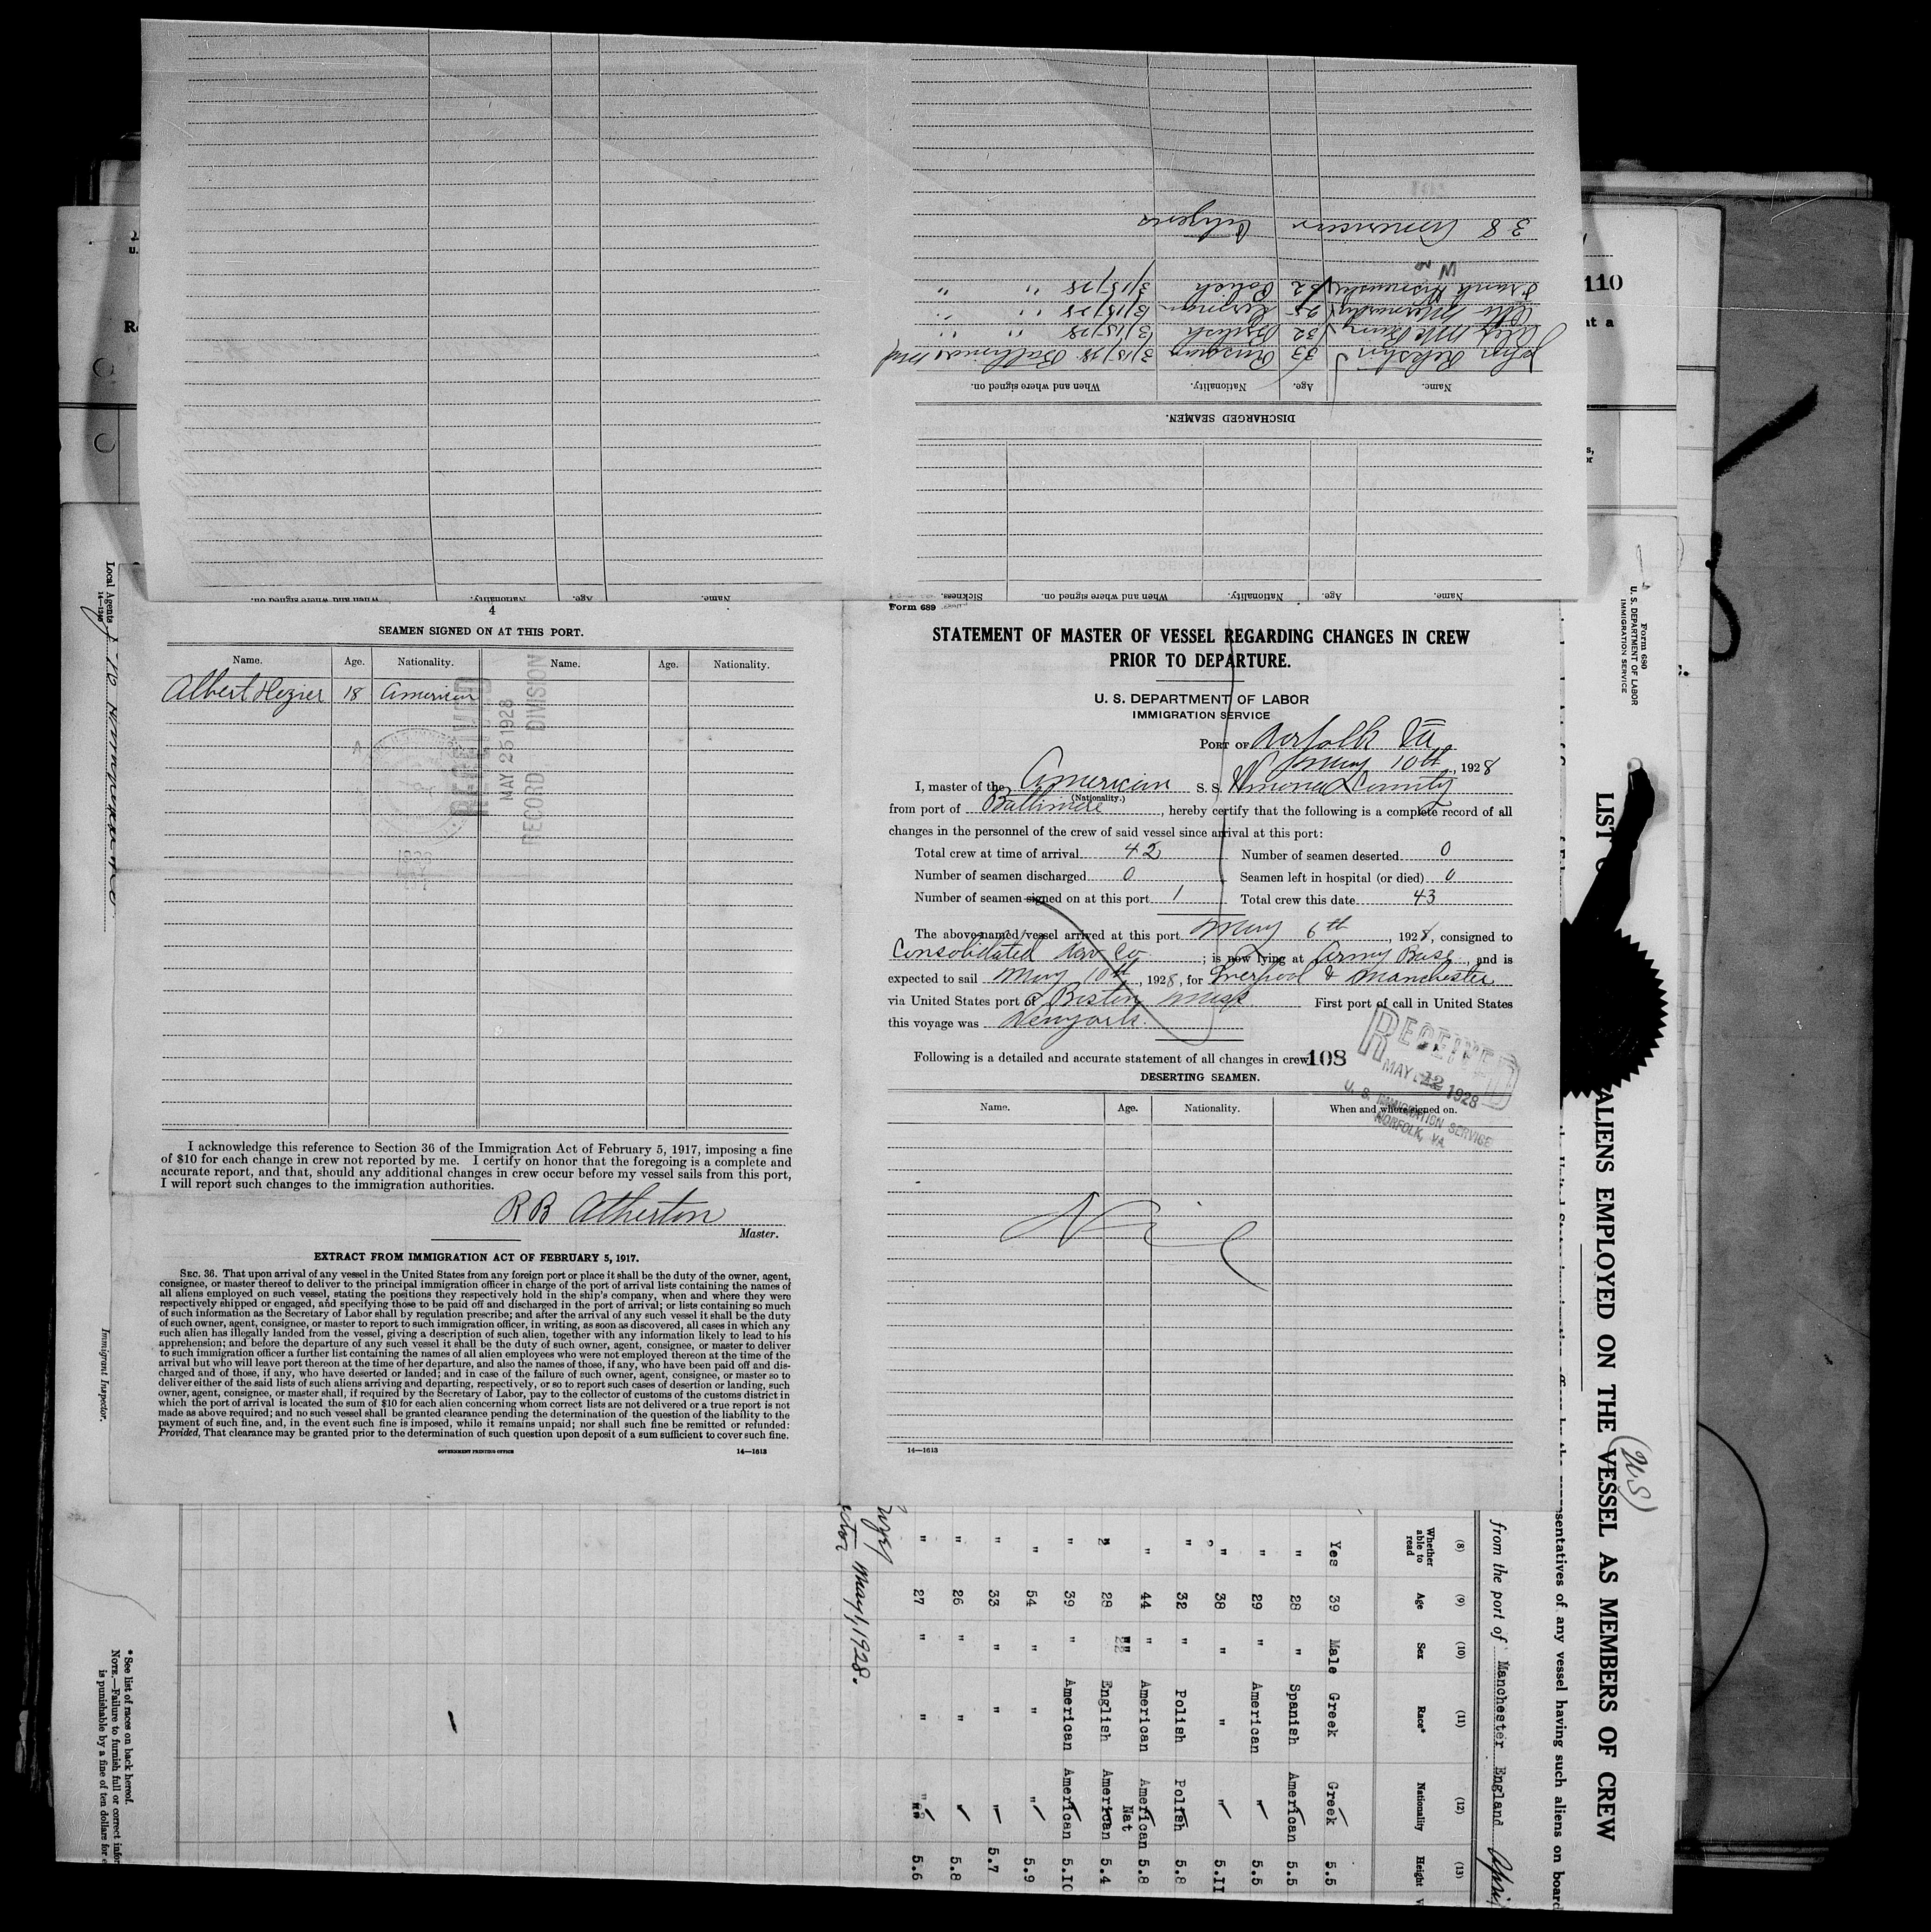 38 American Citizens
Frank 32 Polish 3/15/28 " "
Otto 25 German 3/15/28 " "
Alex 32 British 3/15/28 " "
John 33 3/15/28 Baltimore Md
Name. Age. Nationality. When and where signed on.
DISCHARGED SEAMEN.
Name. Age. Nationality. When and where signed on. Sickness.
Name. Age. Nationality. When and where signed on.
4
SEAMEN SIGNED ON AT THIS PORT.
Name. Age. Nationality. Name. Age. Nationality.
Albert Hezier 18 American
RECEIVED
MAY 25 1928
RECORD DIVISION
I acknowledge this reference to Section 36 of the Immigration Act of February 5, 1917, imposing a fine
of $10 for each change in crew not reported by me. I certify on honor that the foregoing is a complete and
accurate report, and that, should any additional changes in crew occur before my vessel sails from this port,
I will report such changes to the immigration authorities.
R B Atherton
Master.
EXTRACT FROM IMMIGRATION ACT OF FEBRUARY 5, 1917.
SEC. 36. That upon arrival of any vessel in the United States from any foreign port or place it shall be the duty of the owner, agent,
consignee, or master thereof to deliver to the principal immigration officer in charge of the port of arrival lists containing the names of
all aliens employed on such vessel, stating the positions they respectively hold in the ship's company, when and where they were
respectively shipped or engaged, and specifying those to be paid off and discharged in the port of arrival; or lists containing so much
of such information as the Secretary of Labor shall by regulation prescribe; and after the arrival of any such vessel it shall be the duty
of such owner, agent, consignee, or master to report to such immigration officer, in writing, as soon as discovered, all cases in which any
such alien has illegally landed from the vessel, giving a description of such alien, together with any information likely to lead to his
apprehension; and before the departure of any such vessel it shall be the duty of such owner, agent, consignee, or master to deliver
to such immigration officer a further list containing the names of all alien employees who were not employed thereon at the time of the
arrival but who will leave port thereon at the time of her departure, and also the names of those, if any, who have been paid off and dis-
charged and of those, if any, who have deserted or landed; and in case of the failure of such owner, agent, consignee, or master so to
deliver either of the said lists of such aliens arriving and departing, respectively, or so to report such cases of desertion or landing, such
owner, agent, consignee, or master shall, if required by the Secretary of Labor, pay to the collector of customs of the customs district in
which the port of arrival is located the sum of $10 for each alien concerning whom correct lists are not delivered or a true report is not
made as above required; and no such vessel shall be granted clearance pending the determination of the question of the liability to the
payment of such fine, and, in the event such fine is imposed, while it remains unpaid; nor shall such fine be remitted or refunded:
Provided, That clearance may be granted prior to the determination of such question upon deposit of a sum sufficient to cover such fine.
GOVERNMENT PRINTING OFFICE 14—1613
Form 689
STATEMENT OF MASTER OF VESSEL REGARDING CHANGES IN CREW
PRIOR TO DEPARTURE.
U. S. DEPARTMENT OF LABOR
IMMIGRATION SERVICE
PORT OF Norfolk Va
May 10th, 1928
I, master of the American S. S. Winona County
(Nationality.)
from port of Baltimore, hereby certify that the following is a complete record of all
changes in the personnel of the crew of said vessel since arrival at this port:
Total crew at time of arrival 42 Number of seamen deserted 0
Number of seamen discharged 0 Seamen left in hospital (or died) 0
Number of seamen signed on at this port 1 Total crew this date 43
The above-named vessel arrived at this port May 6th, 1928, consigned to
Consolidated Nav Co; is now lying at Army Base, and is
expected to sail May 10th, 1928, for Liverpool & Manchester
via United States port of Boston Mass First port of call in United States
this voyage was Newyork.
Following is a detailed and accurate statement of all changes in crew 108
DESERTING SEAMEN.
Name. Age. Nationality. When and where signed on.
RECEIVED
MAY 12 1928
U. S. IMMIGRATION SERVICE
NORFOLK, VA
Nil
14—1613
110
at a
Form 680
U. S. DEPARTMENT OF LABOR
IMMIGRATION SERVICE
LIST
ALIENS EMPLOYED ON THE VESSEL AS MEMBERS OF CREW
(US)
sentatives of any vessel having such aliens on board
from the port of Manchester England April
(8) (9) (10) (11) (12) (13)
Whether able to read Age Sex Race* Nationality Height
Yes 39 Male Greek Greek 5.5
" 28 " Spanish American 5.5
" 29 " American " 5.5
" 38 " " " 5.11
" 32 " Polish Polish 5.8
" 44 " American American 5.8
Nat
" 28 " English American 5.4
" 39 " American American 5.10
" 54 " " " 5.9
" 33 " " " 5.7
" 26 " " " 5.8
" 27 " " " 5.6
May 1, 1928.
Local Agents
14—1240
Immigrant Inspector.
* See list of races on back hereof.
NOTE.—Failure to furnish full or correct infor
is punishable by a fine of ten dollars for e